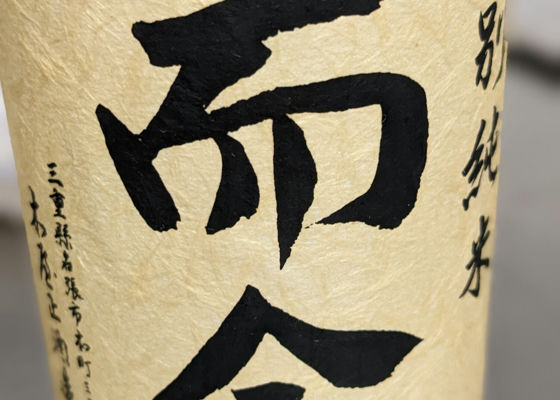 別純米
而今
三重縣名張市本町
木屋正酒造